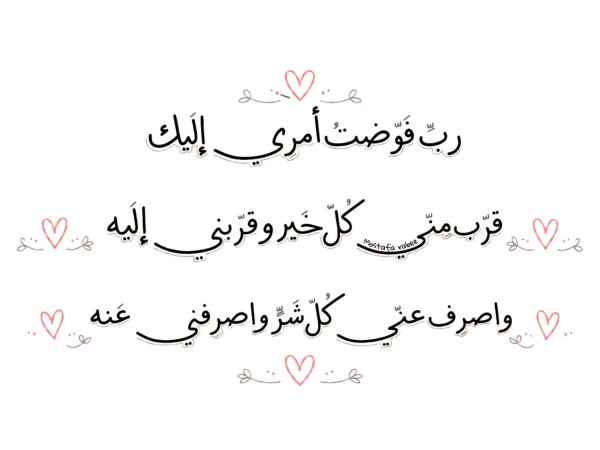 ربِّ فَوّضتُ أمري إلَيك
قرّب مِنّي كُلّ خَير وقرّبني إلَيه
Mostafa rabee
واصرِف عنّي كُلّ شَرٍّ واصرِفني عَنه